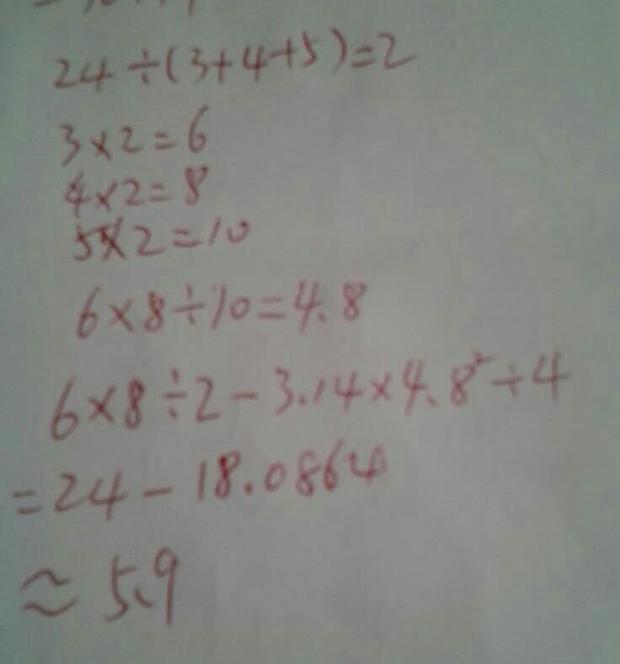 24÷(3+4+5)=2
3×2=6
4×2=8
5×2=10
6×8÷10=4.8
6×8÷2-3.14×4.8²÷4
=24-18.0864
≈5.9